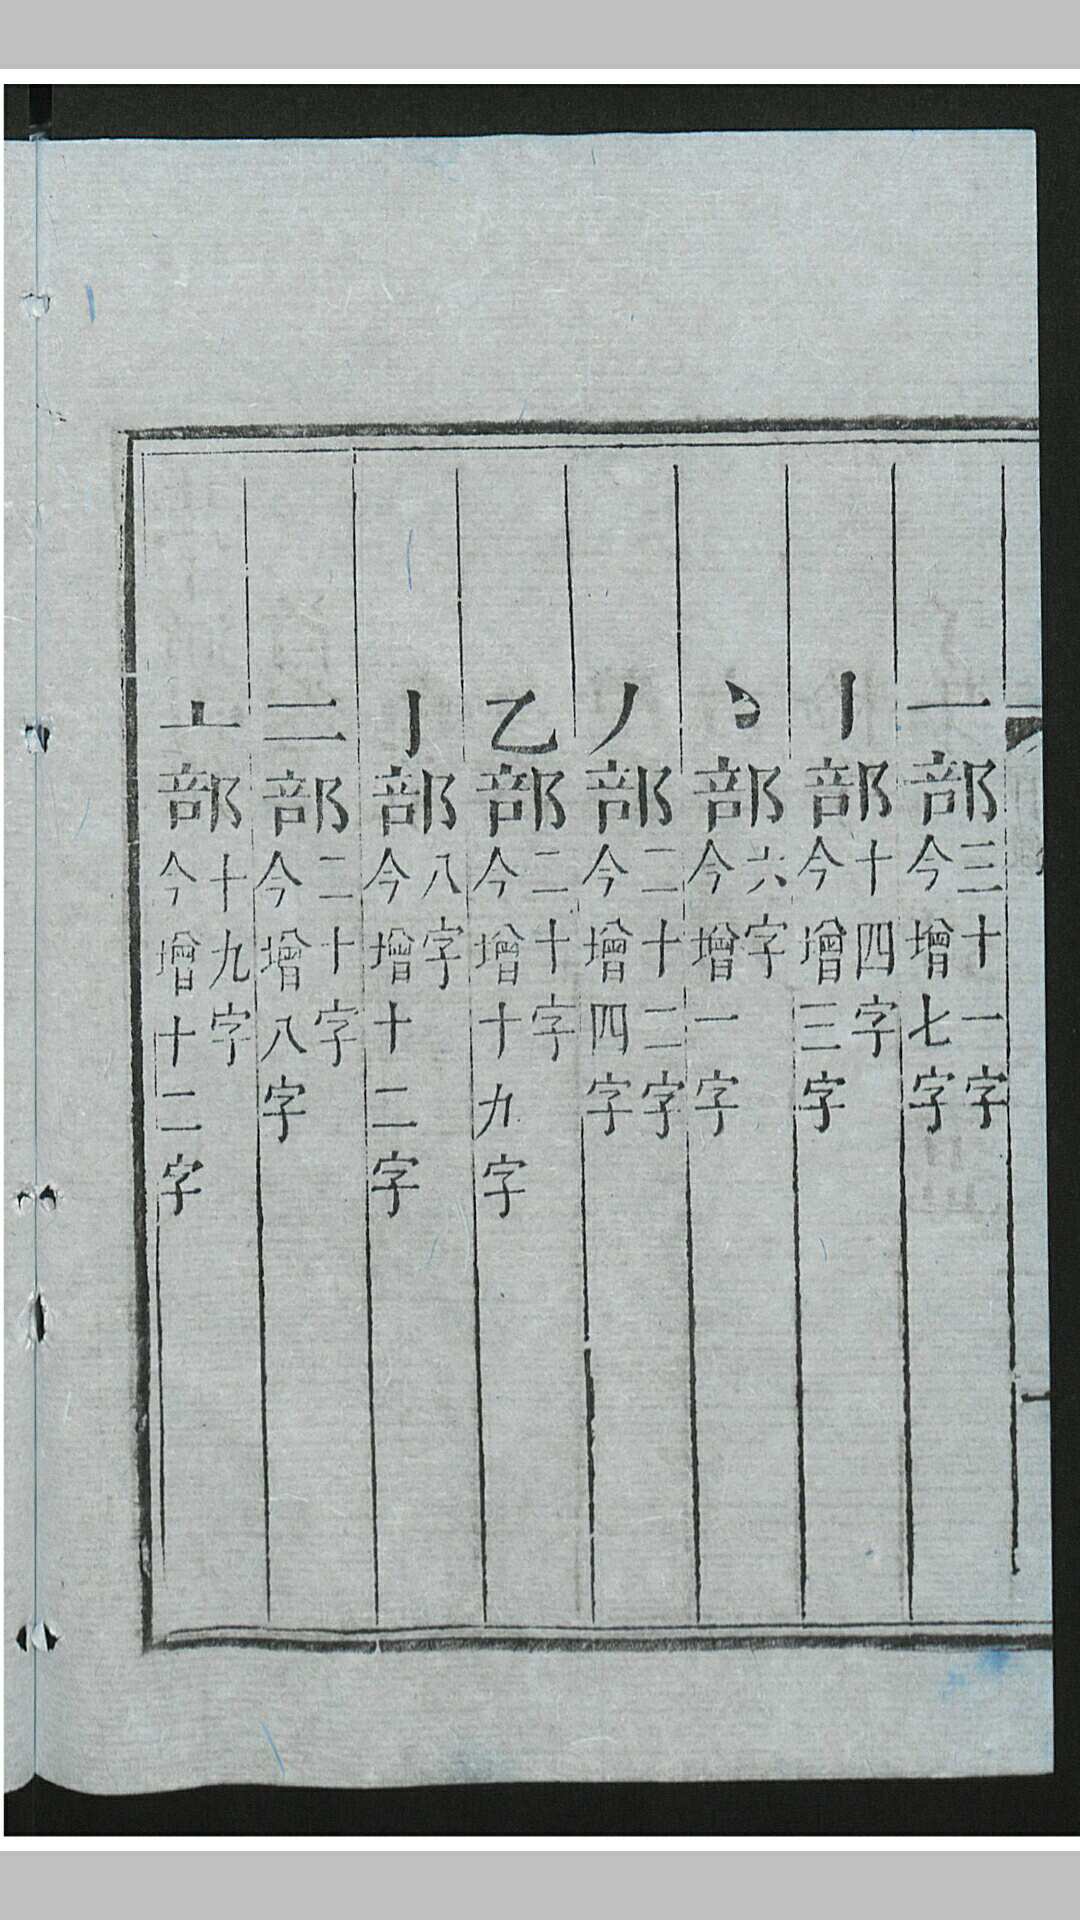 一部三十一字今增七字
丨部十四字今增三字
丶部六字今增一字
丿部二十二字今增四字
乙部二十字今增十九字
亅部八字今增十二字
二部二十字今增八字
亠部十九字今增十二字